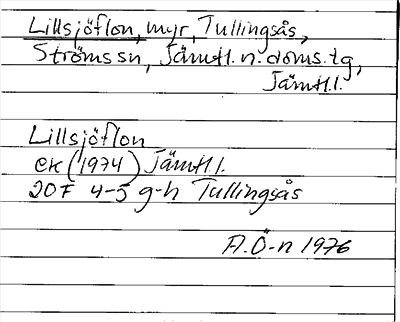 Lillsjöflon, myr, Tullingsås,
Ströms sn, Jämtl. n. doms. tg,
Jämtl. l.
Lillsjöflon
ek (1974) Jämtl l.
20F 4-5 g-h Tullingsås
A. Ö-n 1976